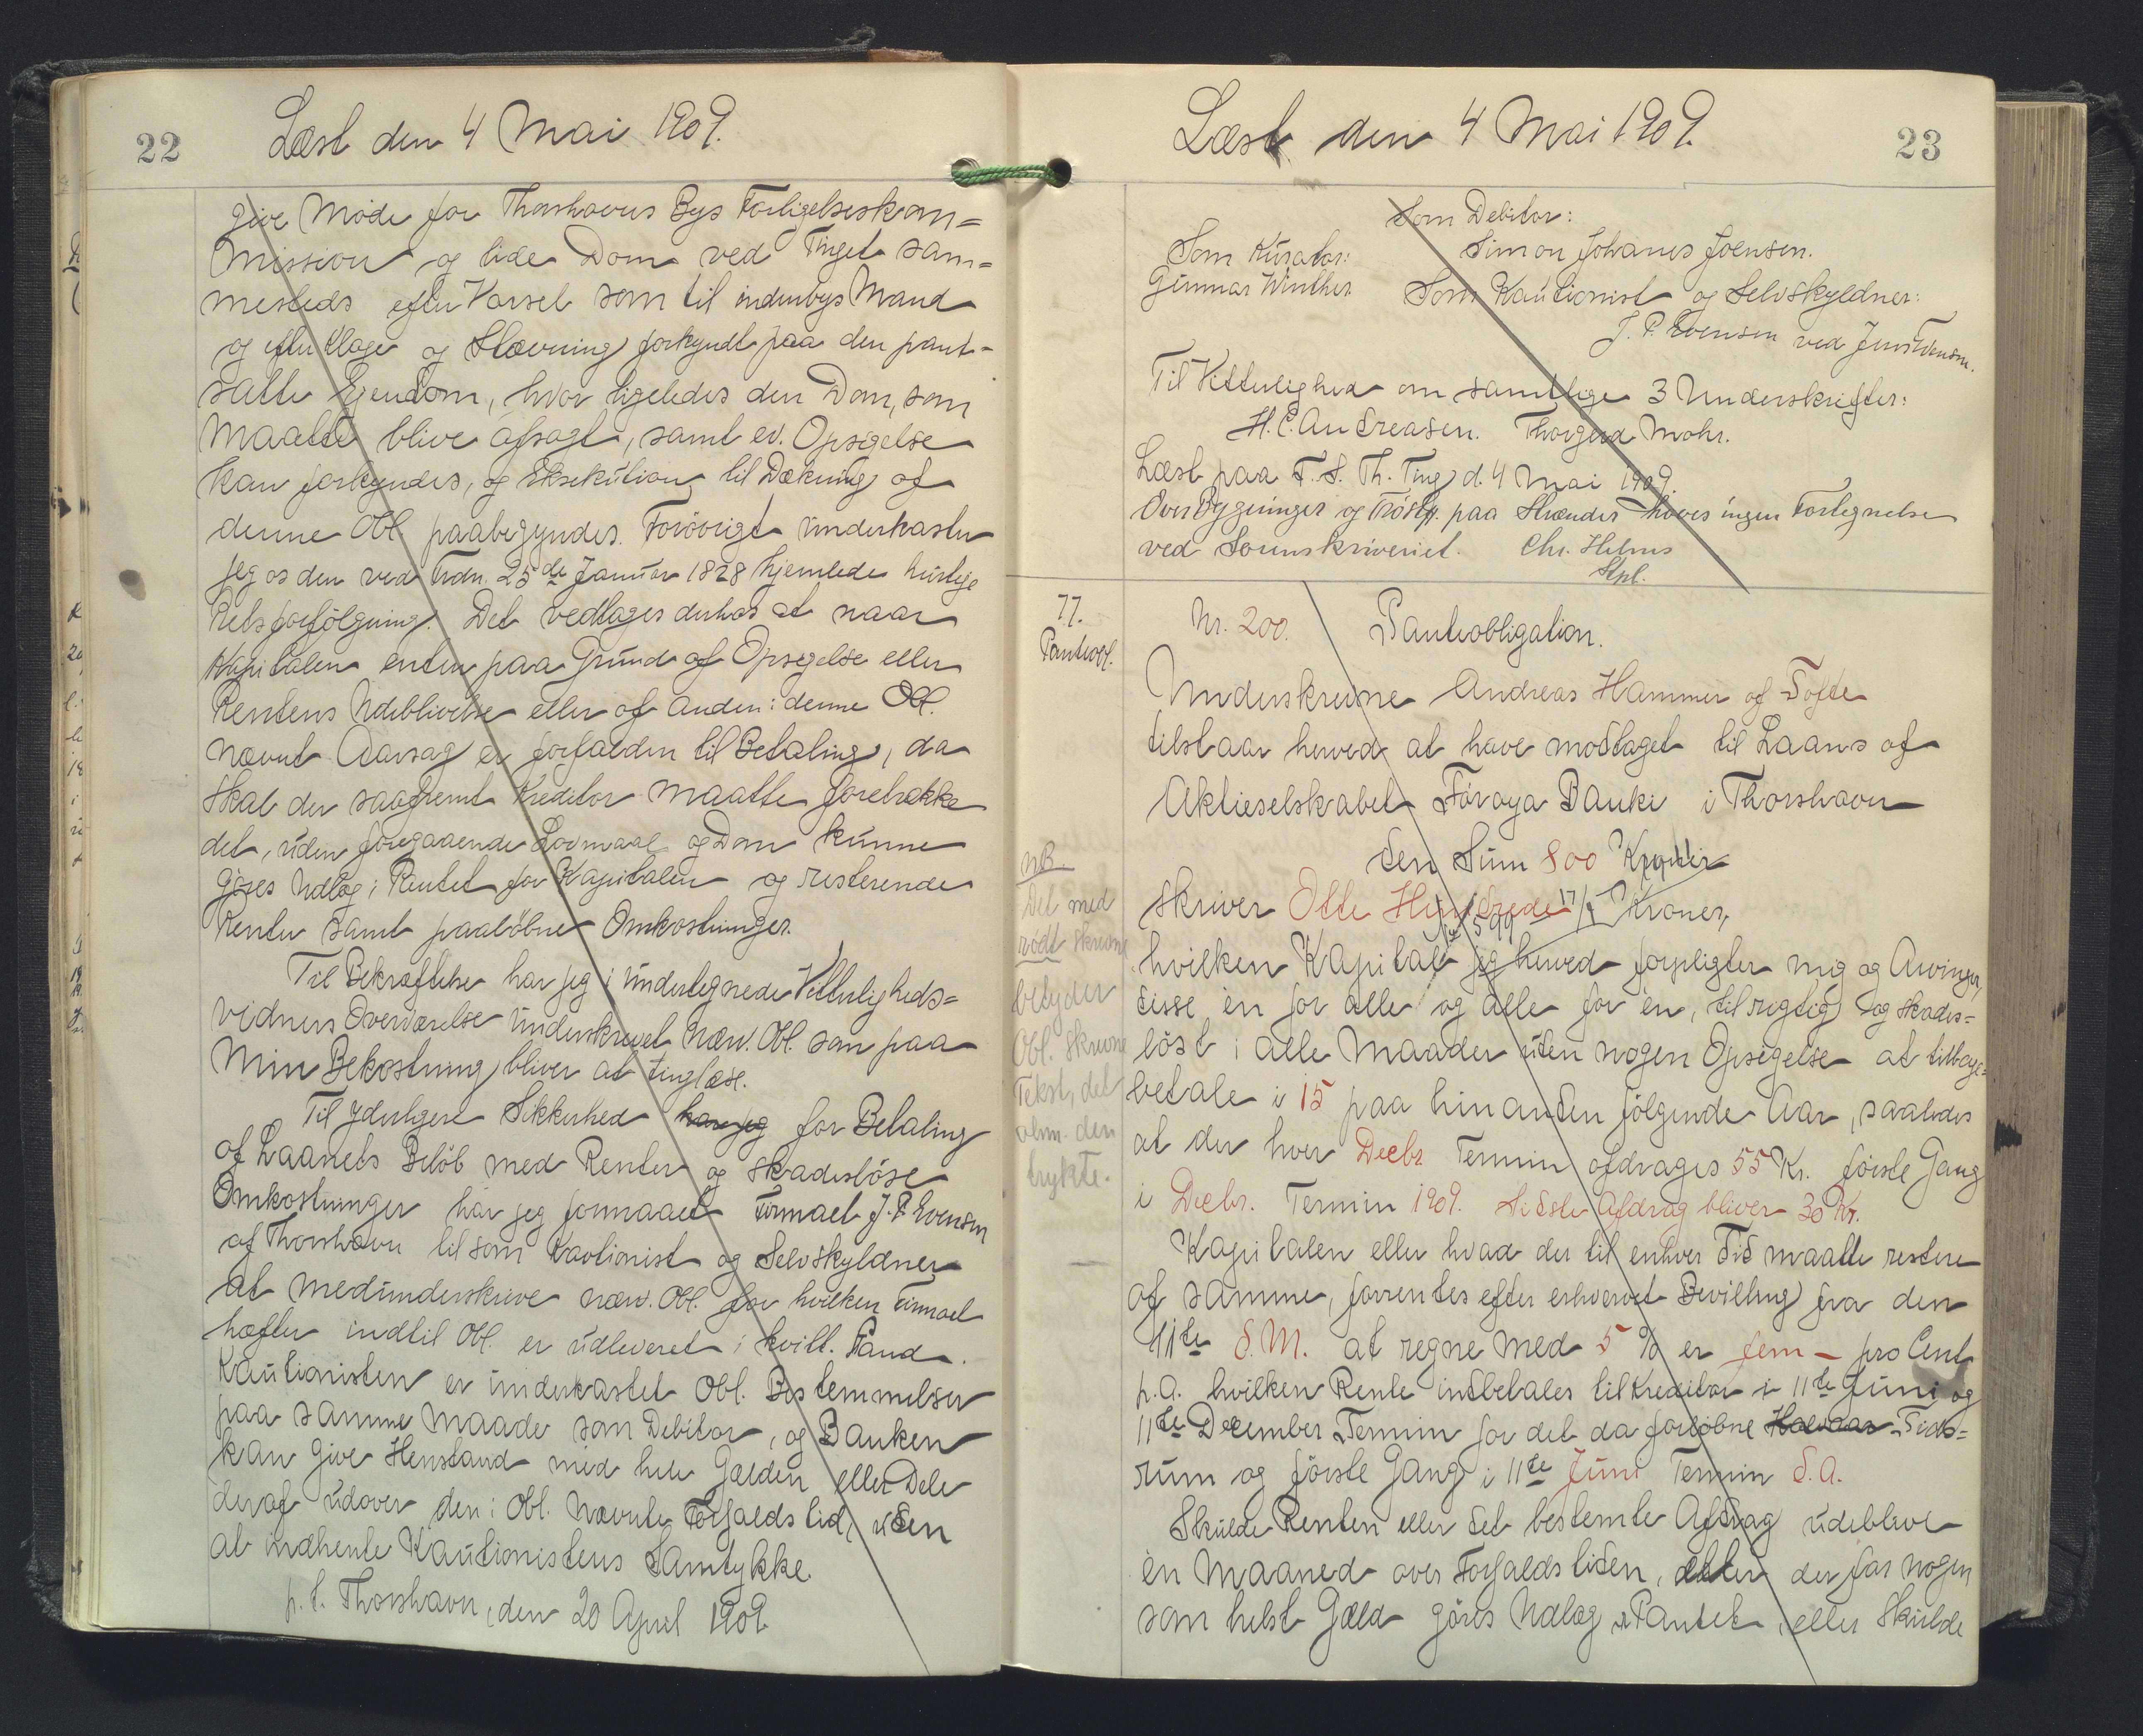 22
Læst den 4 Mai 1909.
give Møde for Thorshavns Bys Forligelseskom=
mission og lide Dom ved Tinget sam=
mesteds efter Varsel som til indenbys Mand
og efter Klage og Stævning forkyndt paa den pant-
satte Ejendom, hvor ligeledes den Dom, som
maatte blive afsagt, samt ev. Opsigelse
kan forkyndes, og Eksekution til Dækning af
denne Obl. paabegyndes. Forøvrigt underkaster
jeg os den ved Frdn. 25de Januar 1828 hjemlede hurtige
Retsforfølgning. Det vedtages derhos at naar
Kapitalen enten paa Grund af Opsigelse eller
Rentens Udeblivelse eller af anden i denne Obl.
nævnt Aarsag er forfalden til Betaling, da
skal der saafremt Kreditor maatte foretrække
det, uden foregaaende Lovmaal og Dom kunne
gøres Udlæg i Pantet for Kapitalen og resterende
Renter samt paaløbne Omkostninger.
Til Bekræftelse har jeg i undertegnede Vitterligheds=
vidners Overværelse underskrevet nærv. Obl. som paa
min Bekostning bliver at tinglæse.
Til yderligere Sikkerhed har jeg for Betaling
af Laanets Beløb med Renter og skadesløse
Omkostninger har jeg formaaet Firmaet J. P. Evensen
af Thorshavn til som Kavtionist og Selvskyldner
at medunderskrive nærv. Obl. for hvilken Firmaet
hæfter indtil Obl. er udleveret i kvitt. Stand.
Kautionisten er underkastet Obl. Bestemmelser
paa samme Maade som Debitor, og Banken
kan give Henstand med hele Gælden eller Dele
deraf udover den i Obl. nævnte Forfaldstid, uden
at indhente Kautionistens Samtykke.
p. t. Thorshavn, den 20 April 1909.
Læst den 4 Mai 1909.
23
Som Debitor:
Simon Johanes Joensen.
Som Kurator:
Gunnar Winther
Som Kautionist og Selvskyldner:
J. P. Evensen ved Jens Evensen.
Til Vitterlighed om samtlige 3 Underskrifter:
H. C. Andreasen. Thorgerd Mohr.
Læst paa F. S. Th. Ting d. 4 Mai 1909.
Over Bygninger og paa Strender haves ingen Fortegnelse
ved Sorenskriveriet. Chr. Helms
Stpl.
77.
Panteobl.
Nr. 200. Panteobligation.
Underskrevne Andreas Hammer af Tofte
tilstaar herved at have modtaget til Laans af
Aktieselskabet Føroya Banki i Thorshavn
den Sum 800 Kroner
skriver Otte Hundrede 17/ Kroner,
hvilken Kapital jeg herved forpligter mig og Arvinger,
disse èn for alle og alle for èn, til rigtig og skades=
løst i alle Maader uden nogen Opsigelse at tilbage=
betale i 15 paa hinanden følgende Aar, saaledes
at der hver Decbr Termin afdrages 55 Kr. første Gang
i Decbr. Termin 1909. Sidste Afdrag bliver 30 Kr.
Kapitalen eller hvad der til enhver Tid maatte restere
af samme, forrentes efter erhvervet Bevilling fra den
11te d. M. at regne med 5 % er fem - pro Cent
p.a. hvilken Rente indbetales til Kreditor i 11te Juni og
11te December Termin for det da forløbne Halvaar Tids=
rum og første Gang i 11te Juni Termin d. A.
Skulde Renten eller det bestemte Afdrag udeblive
èn Maaned over Forfaldstiden, eller der for nogen
som helst Gæld gøres Udlæg i Pantet, eller skulde
NB.
Det med
rødt skrevne
betyder
Obl. skrevne
Tekst, det
alm. den
trykte.